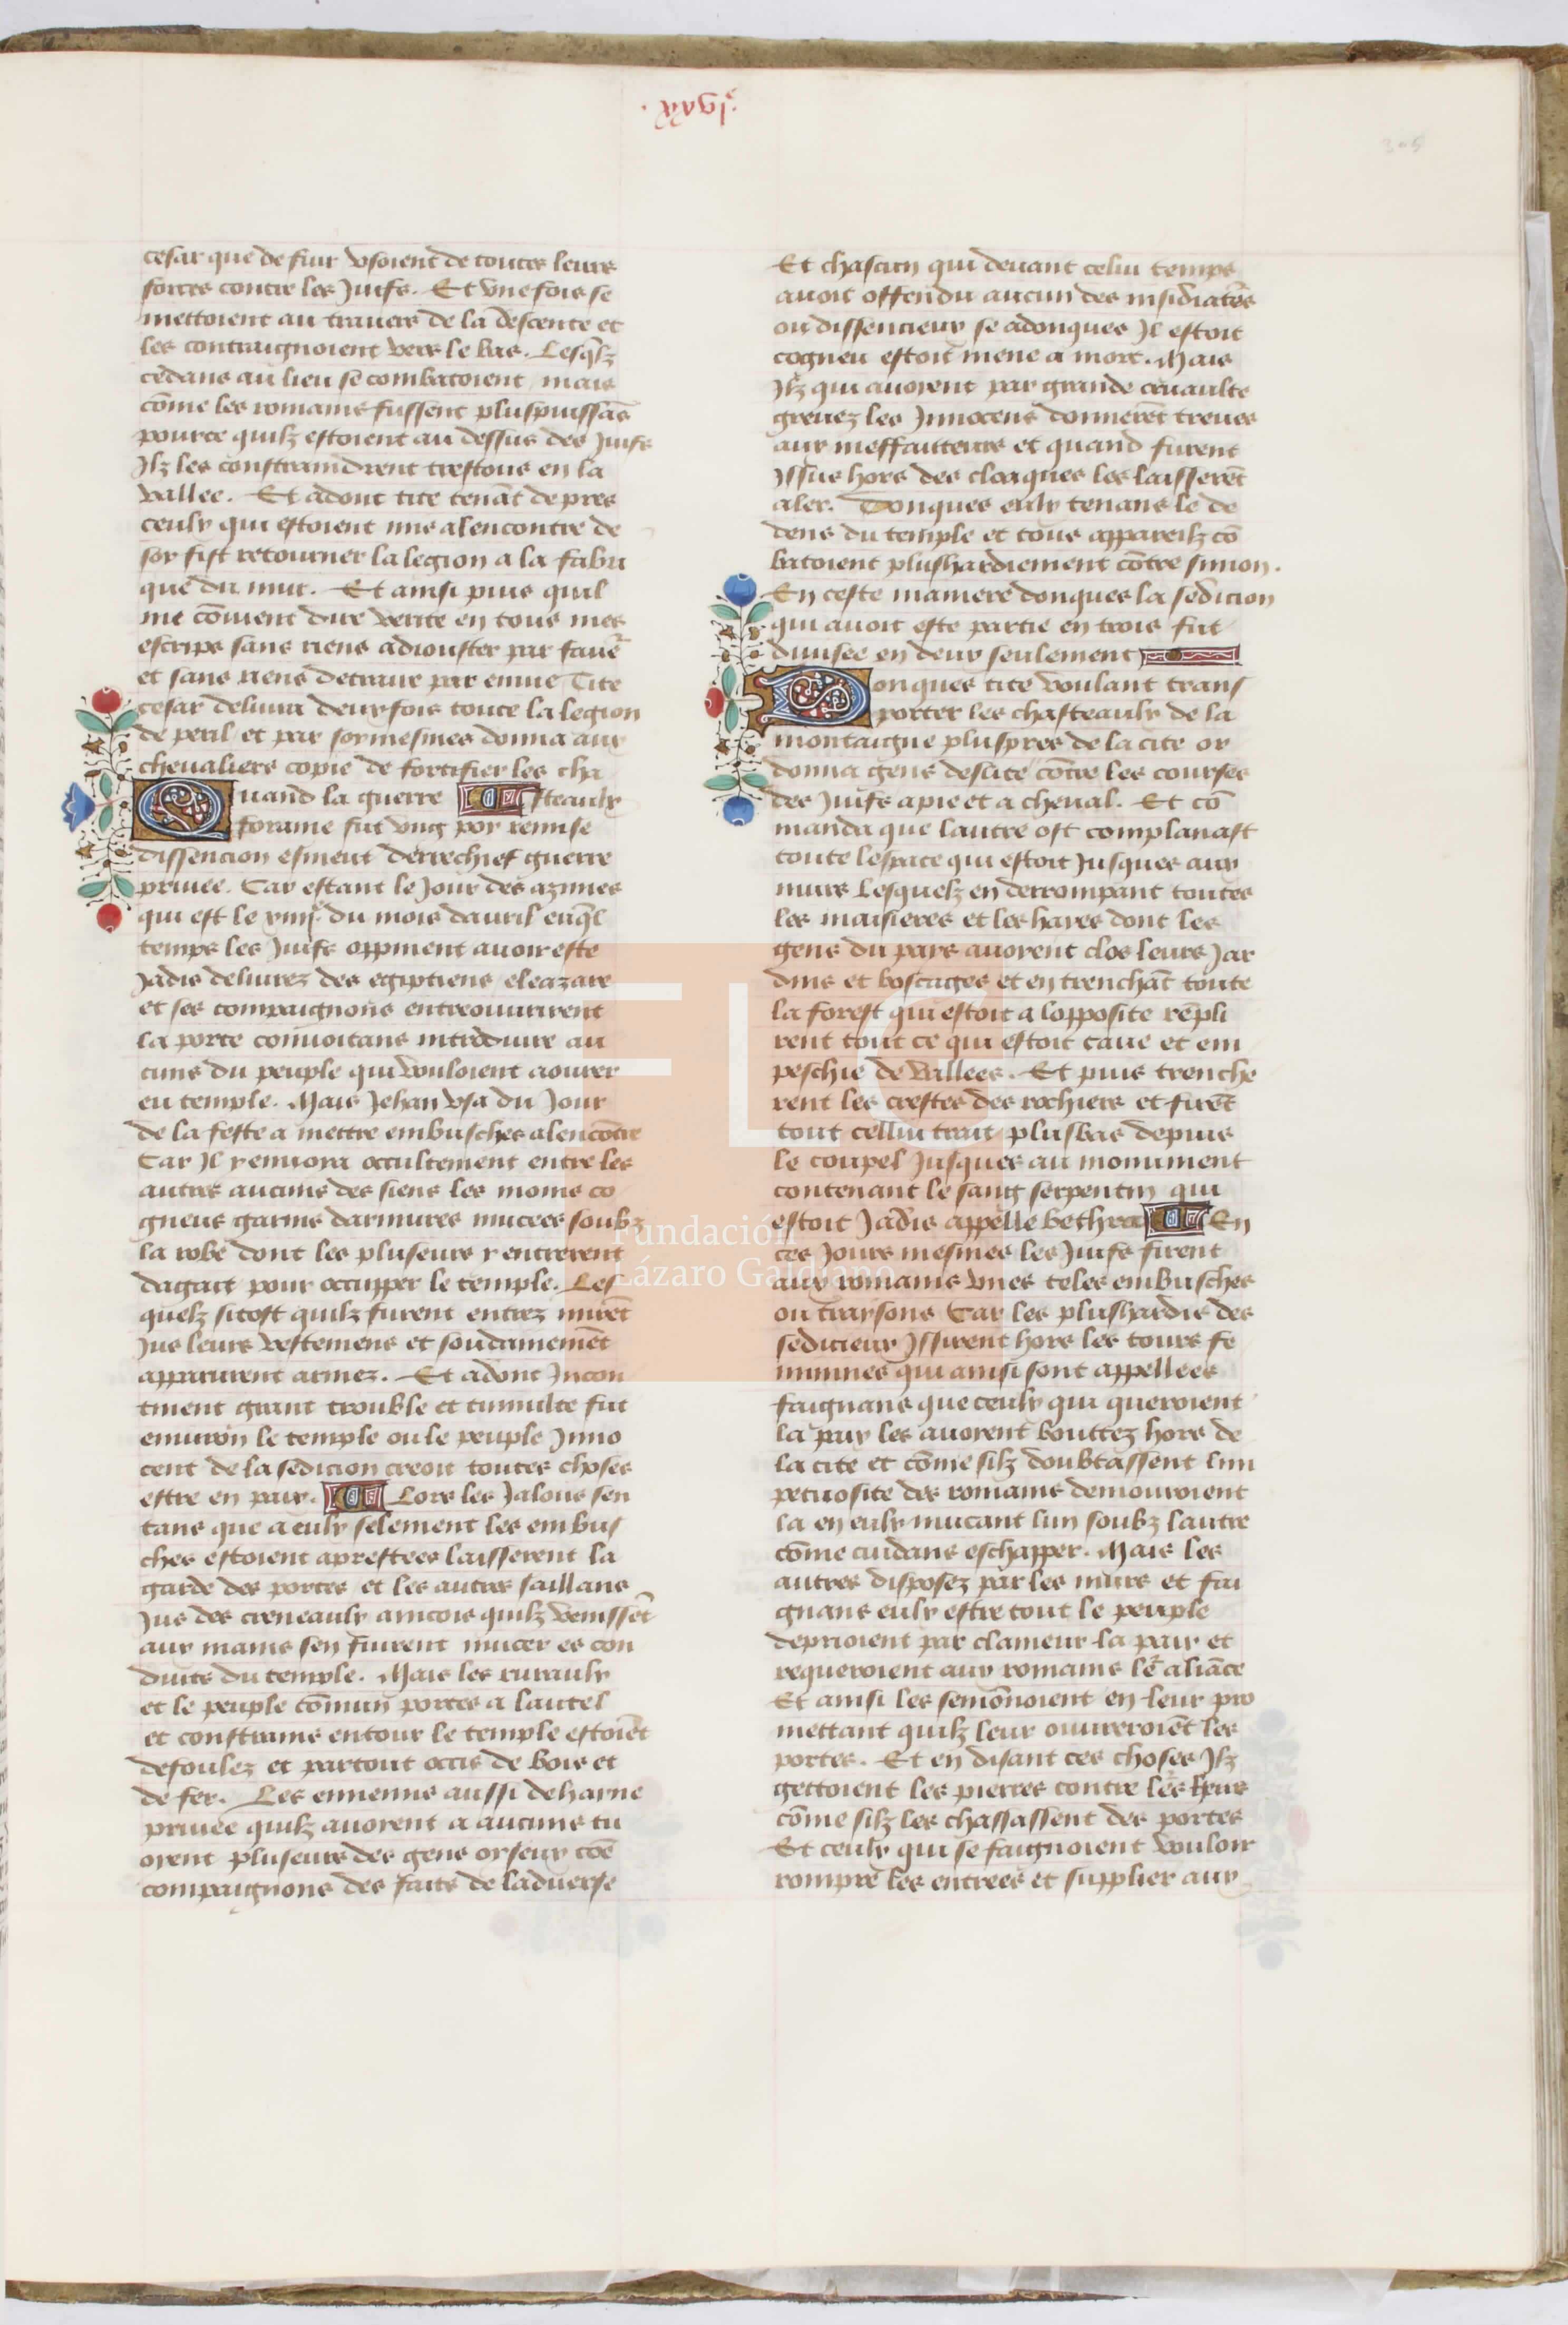 .lxxx.
cesar que de fuir vsoient de toutes leurs
forces contre les Juifs. Et vne fois se
mettoient au trauers de la descente et
les contraignoient vers le bas. Lesq̃lz
cedans au lieu se combatoient mais
cõme les romains fussent pluspuissãs
pource quilz estoient au dessus des Juifs
Jlz les constraindrent trestous en la
vallee. Et adont tite tenãt de pres
ceulx qui estoient mis alencontre de
soy fist retourner la legion a la fabri
que du mur. Et ainsi puis quil
me cõuient dire verite en tous mes
escrips sans riens adiouster par faueˀ
et sans riens detraire par enuie Tite
cesar deliura deux fois toute la legion
de peril et par soy mesmes donna aux
cheualiers copie de fortifier les cha
Quand la guerre steaulx
foraine fut vng poy remise
dissencion esment derrechief guerre
priuee. Car estant le Jour des azimes
qui est le xiiije du mois dauril euq̃l
temps les Juifs oppinent auoir este
Jadis deliurez des egiptiens eleazare
et ses compaignons entreouurirent
la porte conuoitans introduire au
cuns du peuple qui vouloient aourer
eu temple. Mais Jehan vsa du Jour
de la feste a mettre embusches alencõtre
Car Jl y enuoya occultement entre les
autres aucuns des siens les moins co
gneus garnis darmures mucees soubz
la robe dont les pluseurs y entrerent
daguet pour occupper le temple. Les
quelz sitost quilz furent entrez mirẽt
Jus leurs vestemens et soudainemẽt
apparurent armez. Et adont Jncon
tinent grant trouble et tumulte fut
enuiron le temple ou le peuple Jnno
cent de la sedicion creoit toutes choses
estre en paix. Lors les Jalous sen
tans que a eulx selement les embus
ches estoient aprestees laisserent la
garde des portes et les autres saillans
Jus des creneaulx aincois quilz venissẽt
aux mains sen fuirent mucer es con
duits du temple. Mais les ruraulx
et le peuple cõmun portes a lautel
et constrains entour le temple estoiẽt
defoulez et partout occis de bois et
de fer. Les ennemis aussi de hayne
priuee quilz auoient a aucuns tu
oient pluseurs des gens oyseux cõe
compaignons des fais de laduerse
Et chascun qui deuant celui temps
auoit offendu aucun des insidiatẽs
ou dissencieux se adonques Jl estoit
cogneu estoit mene a mort. Mais
Jlz qui auoient par grande cruaulte
greuez les Jnnocens donnerẽt treues
aux meffaitteurs et quand furent
Jssus hors des cloaques les laisserẽt
aler. Donques eulx tenans le de
dens du temple et tous appareilz cõ
batoient plushardiement cõtre simon.
En ceste maniere donques la sedicion
qui auoit este partie en trois fut
diuisee en deux seulement
Donques tite voulant trans
porter les chasteaulx de la
montaigne pluspres de la cite or
donna gens deslite cõtre les courses
des Juifs a pie et a cheual. Et cõ
manda que lautre ost complanast
toute lespace qui estoit Jusques aux
murs Lesquelz en derrompant toutes
les maisieres et les hayes dont les
gens du pays auoient clos leurs Jar
dins et boscages et en trenchãt toute
la forest qui estoit a lopposite rẽpli
rent tout ce qui estoit caue et em
peschie de vallees. Et puis trenche
rent les crestes des rochiers et firẽt
tout cellui trait plusbas depuis
le coupel Jusques au monument
contenant le sang serpentin qui
estoit Jadis appelle bethra En
ces Jours mesmes les Juifs firent
aux romains vnes teles embusches
ou traysons Car les plushardis des
sedicieux Jssirent hors les tours fe
minines qui ainsi sont appellees
faignans que ceulx qui queroient
la paix les auoient bouttez hors de
la cite et cõme silz doubtassent lim
petuosite des romains demouroient
la en eulx mucant lun soubz lautre
cõme cuidans eschapper. Mais les
autres disposez par les murs et fai
gnans eulx estre tout le peuple
deprioient par clameur la paix et
requeroient aux romains leˀ aliãce
Et ainsi les semõnoient en leur pro
mettant quilz leur ouureroiẽt les
portes. Et en disant ces choses Jlz
gettoient les pierres contre
cõme silz les chassassent des portes
Et ceulx qui se faignoient vouloir
rompre les entrees et supplier aux
Fundación
Lázaro Galdiano
FLG